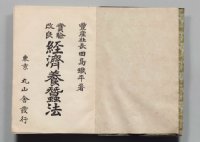 豊産社長田島鐵平著
實驗
改良
經濟養蠶法
東京 丸山舎發行